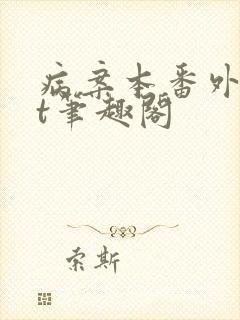 病案本番外
t笔趣阁
索斯